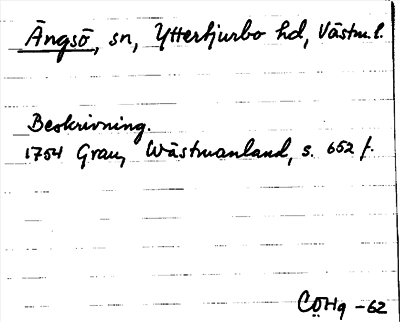 Ängsö, sn, Ytterljurbo hd, Västm.l.
Beskrivning.
1754 Grau, Wästmanland, s. 652 f.
CÖHg -62